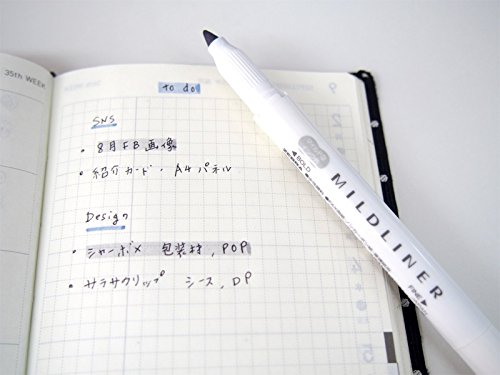 35th WEEK
To do
SNS
・8月FB画像
・紹介カード・A4パネル
Design
・シャーボX 包装材, POP
・サラサクリップ シース, DP
BOLD
MILDLINER
FINE